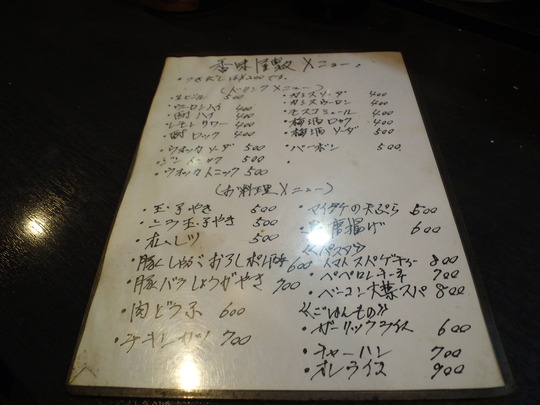 香味屋敷メニュー
・つきだしは¥200です。
(ドリンクメニュー)
・生ビール 500
・ウーロンハイ 400
・酎ハイ 400
・レモンサワー 400
・酎ロック 400
・ウォッカソーダ 500
・ジントニック 500
・ウォッカトニック 500
・カシスソーダ 400
・カシスウーロン 400
・モスコミュール 400
・梅酒ロック 400
・梅酒ソーダ 500
・バーボン 500
(お料理メニュー)
・玉子やき 500
・ニラ玉子やき 500
・オムレツ 500
・豚しゃぶおろしポン酢 600
・豚バラしょうがやき 700
・肉どうふ 600
・チキンカツ 700
・マイタケの天ぷら 500
唐揚げ 600
《パスタ》
・トマトスパゲティー 800
・ペペロンチーノ 700
・ベーコン大葉スパ 800
《ごはんもの》
・ガーリックライス 600
・チャーハン 700
・オムライス 900